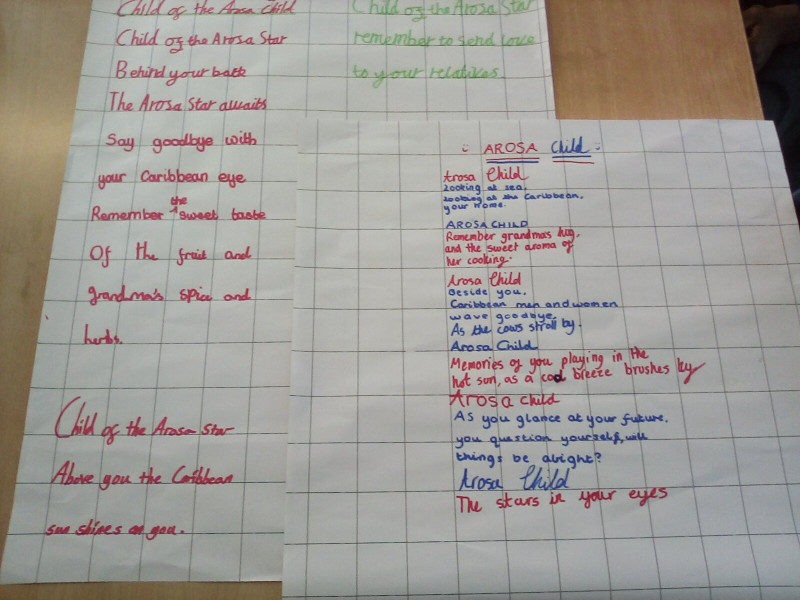 Child of the Arosa Child
Child of the Arosa Star
Behind your back
The Arosa Star awaits
Say goodbye with
your Caribbean eye
Remember the sweet taste
Of the fruit and
grandma's spice and
herbs.
Child of the Arosa Star
Above you the Caribbean
sun shines on you.
Child of the Arosa Star
remember to send love
to your relatives.
AROSA Child
Arosa Child
Looking at sea,
Looking at the Caribbean,
your home.
AROSA CHILD
Remember grandma's hug,
and the sweet aroma of
her cooking.
Arosa Child
Beside you,
Caribbean men and women
wave goodbye.
As the cows stroll by.
Arosa Child
Memories of you playing in the
hot sun, as a cool breeze brushes by
Arosa child
As you glance at your future,
you question yourself, will
things be alright?
Arosa Child
The stars in your eyes